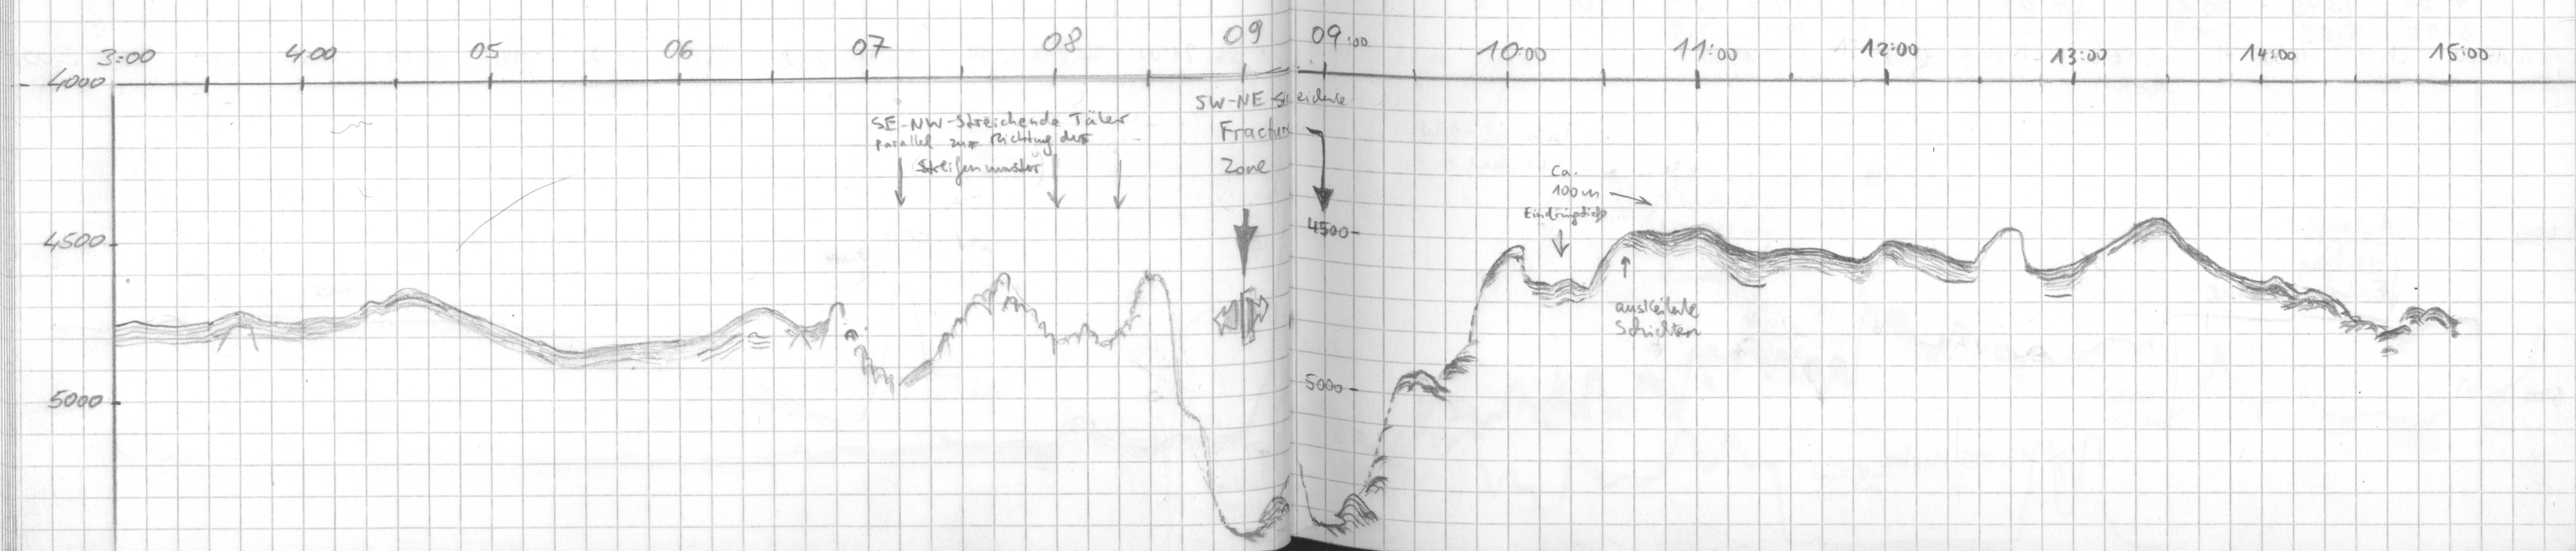 3:00 4:00 05 06 07 08 09 09:00 10:00 11:00 12:00 13:00 14:00 15:00
4000
SE-NW-Streichende Täler
parallel zur Richtung der
Streifenmuster
SW-NE-streichende
Fracture
Zone
Ca.
100m
Eindringtiefe
4500
4500
auskeilende
Schichten
5000
5000